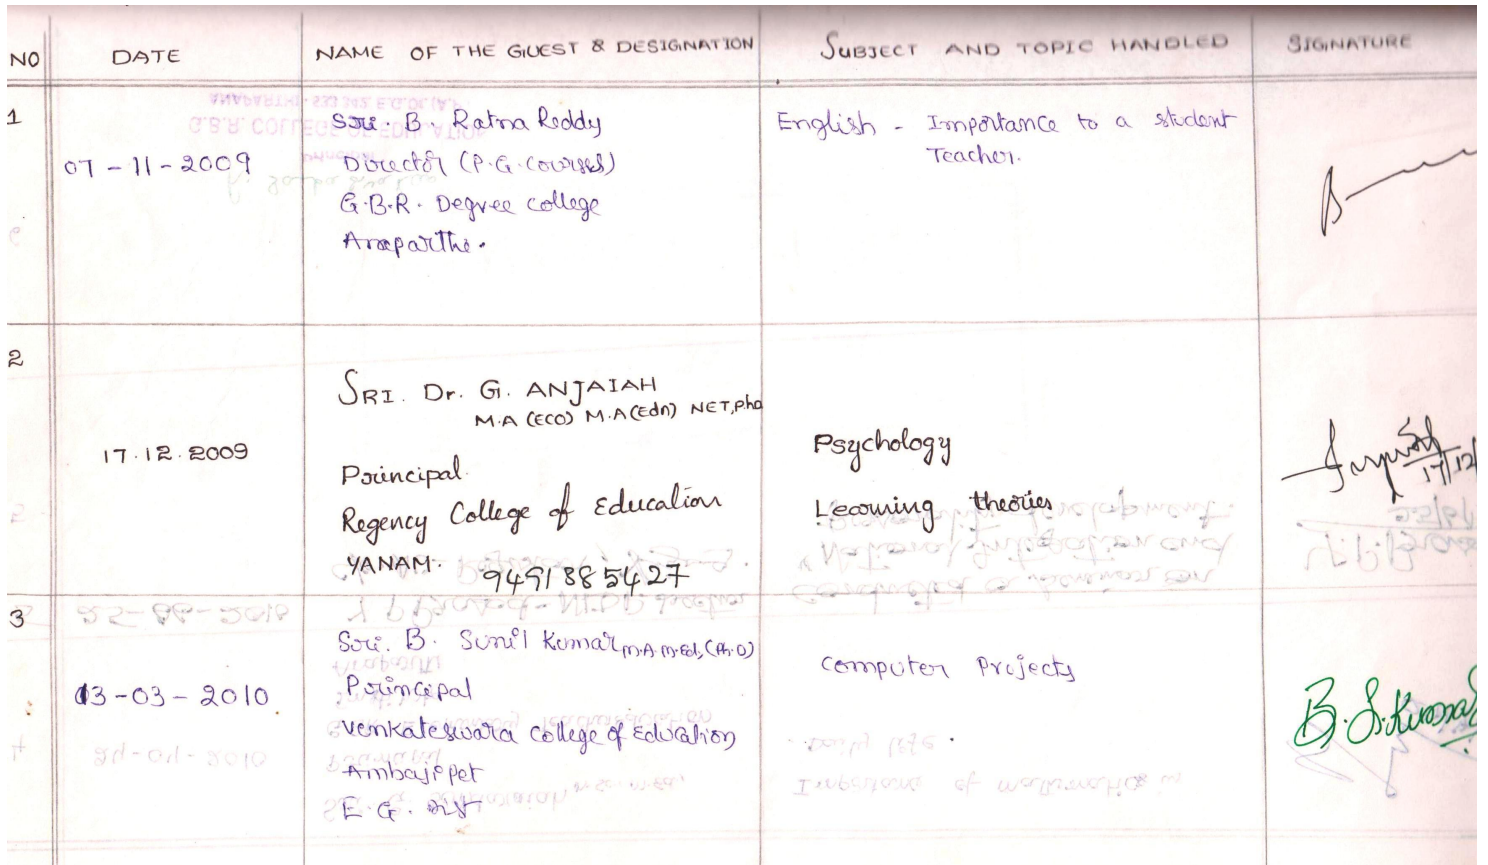 NO DATE NAME OF THE GUEST & DESIGNATION SUBJECT AND TOPIC HANDLED SIGNATURE
1
07-11-2009
Sri. B. Ratna Reddy
Director (P.G. courses)
G.B.R. Degree college
Anaparthi.
English - Importance to a student
Teacher.
2
17.12.2009
SRI. Dr. G. ANJAIAH
M.A (ECO) M.A (Edn) NET, P.hd
Principal
Regency College of Education
YANAM.
9491885427
Psychology
Learning theories
17/12/
3
13-03-2010
Sri. B. Sunil Kumar M.A. M.Ed, (Ph.D)
Principal
Venkateswara College of Education
Ambajipet
E. G. Dist
Computer Projects
B.S.Kumar